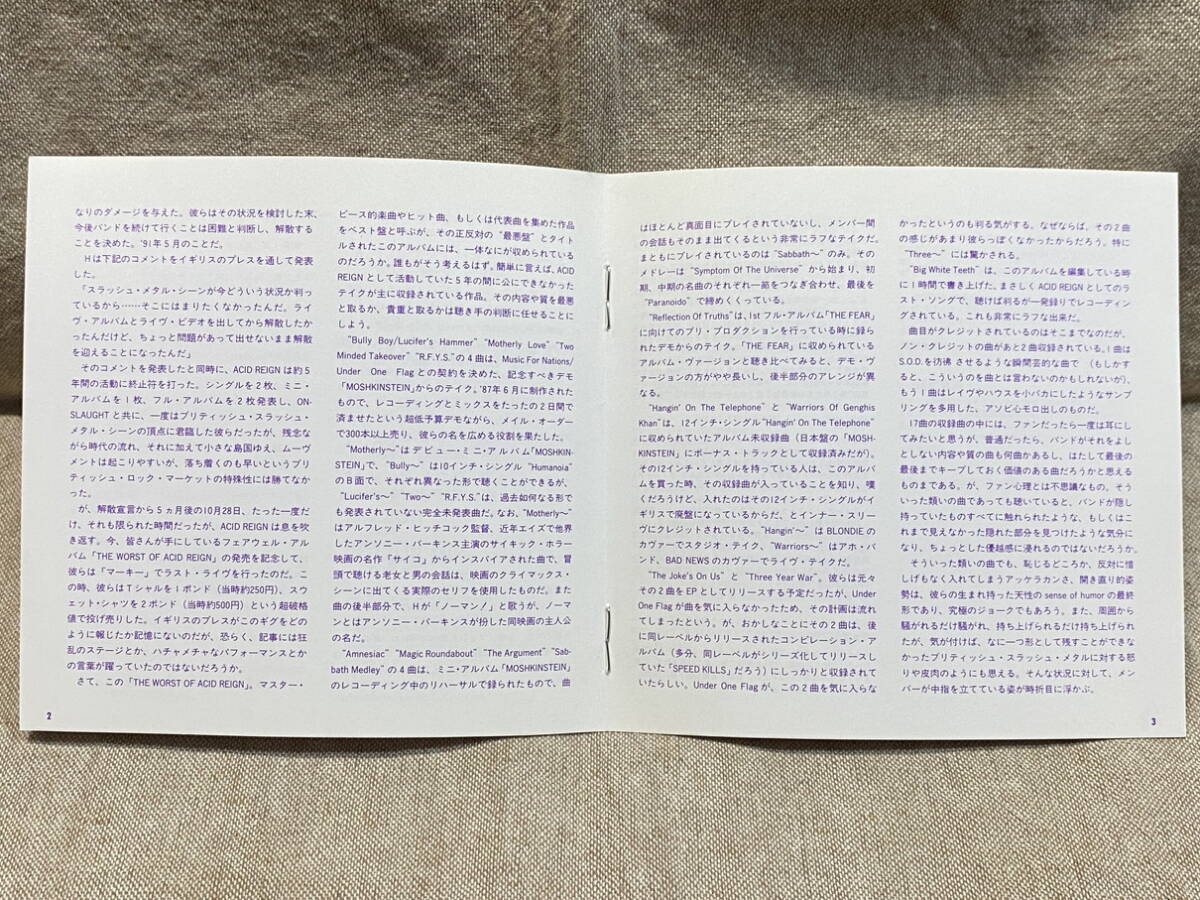 なりのダメージを与えた。彼らはその状況を検討した末、
今後バンドを続けて行くことは困難と判断し、解散する
ことを決めた。'91年5月のことだ。
Hは下記のコメントをイギリスのプレスを通して発表
した。
「スラッシュ・メタル・シーンが今どういう状況か判っ
ているから……そこにはまりたくなかったんだ。ライ
ヴ・アルバムとライヴ・ビデオを出してから解散したか
ったんだけど、ちょっと問題があって出せないまま解散
を迎えることになったんだ」
そのコメントを発表したと同時に、ACID REIGNは約5
年間の活動に終止符を打った。シングルを2枚、ミニ・
アルバムを1枚、フル・アルバムを2枚発表し、ON-
SLAUGHTと共に、一度はブリティッシュ・スラッシュ・
メタル・シーンの頂点に君臨した彼らだったが、残念な
がら時代の流れ、それに加えて小さな島国ゆえ、ムーヴ
メントは起こりやすいが、落ち着くのも早いというブリ
ティッシュ・ロック・マーケットの特殊性には勝てなか
った。
が、解散宣言から5ヵ月後の10月28日、たった一度だ
け、それも限られた時間だったが、ACID REIGNは息を吹
き返す。今、皆さんが手にしているフェアウェル・アル
バム「THE WORST OF ACID REIGN」の発売を記念して、
彼らは「マーキー」でラスト・ライヴを行ったのだ。こ
の時、彼らはTシャルを1ポンド（当時約250円）、スウ
ェット・シャツを2ポンド（当時約500円）という超破格
値で投げ売りした。イギリスのプレスがこのギグをどの
ように報じたか記憶にないのだが、恐らく、記事には狂
乱のステージとか、ハチャメチャなパフォーマンスとか
の言葉が躍っていたのではないだろうか。
さて、この「THE WORST OF ACID REIGN」。マスター・
2
ピース的楽曲やヒット曲、もしくは代表曲を集めた作品
をベスト盤と呼ぶが、その正反対の"最悪盤"とタイト
ルされたこのアルバムには、一体なにが収められている
のだろうか。誰もがそう考えるはず。簡単に言えば、ACID
REIGNとして活動していた5年の間に公にできなかった
テイクが主に収録されている作品。その内容や質を最悪
と取るか、貴重と取るかは聴き手の判断に任せることに
しよう。
"Bully Boy/Lucifer's Hammer" "Motherly Love" "Two
Minded Takeover" "R.F.Y.S."の4曲は、Music For Nations/
Under One Flagとの契約を決めた、記念すべきデモ
「MOSHKINSTEIN」からのテイク。'87年6月に制作された
もので、レコーディングとミックスをたったの2日間で
済ませたという超低予算デモながら、メイル・オーダー
で300本以上売り、彼らの名を広める役割を果たした。
"Motherly～"はデビュー・ミニ・アルバム「MOSHKIN-
STEIN」で、"Bully～"は10インチ・シングル"Humanoia"
のB面で、それぞれ異なった形で聴くことができるが、
"Lucifer's～" "Two～" "R.F.Y.S."は、過去如何なる形で
も発表されていない完全未発表曲だ。なお、"Motherly～"
はアルフレッド・ヒッチコック監督、近年エイズで他界
したアンソニー・パーキンス主演のサイキック・ホラー
映画の名作「サイコ」からインスパイアされた曲で、冒
頭で聴ける老女と男の会話は、映画のクライマックス・
シーンに出てくる実際のセリフを使用したものだ。また
曲の後半部分で、Hが「ノーマン！」と歌うが、ノーマ
ンとはアンソニー・パーキンスが扮した同映画の主人公
の名だ。
"Amnesiac" "Magic Roundabout" "The Argument" "Sab-
bath Medley"の4曲は、ミニ・アルバム「MOSHKINSTEIN」
のレコーディング中のリハーサルで録られたもので、曲
はほとんど真面目にプレイされていないし、メンバー間
の会話もそのまま出てくるという非常にラフなテイクだ。
まともにプレイされているのは"Sabbath～"のみ。その
メドレーは"Symptom Of The Universe"から始まり、初
期、中期の名曲のそれぞれ一節をつなぎ合わせ、最後を
"Paranoido"で締めくくっている。
"Reflection Of Truths"は、1stフル・アルバム「THE FEAR」
に向けてのプリ・プロダクションを行っている時に録ら
れたデモからのテイク。「THE FEAR」に収められている
アルバム・ヴァージョンと聴き比べてみると、デモ・ヴ
ァージョンの方がやや長いし、後半部分のアレンジが異
なる。
"Hangin' On The Telephone"と"Warriors Of Genghis
Khan"は、12インチ・シングル"Hangin' On The Telephone"
に収められていたアルバム未収録曲（日本盤の「MOSH-
KINSTEIN」にボーナス・トラックとして収録済みだが）。
その12インチ・シングルを持っている人は、このアルバ
ムを買った時、その収録曲が入っていることを知り、嘆
くだろうけど、入れたのはその12インチ・シングルがイ
ギリスで廃盤になっているからだ、とインナー・スリー
ヴにクレジットされている。"Hangin'～"はBLONDIEの
カヴァーでスタジオ・テイク、"Warriors～"はアホ・バ
ンド、BAD NEWSのカヴァーでライヴ・テイクだ。
"The Joke's On Us"と"Three Year War"。彼らは元々
その2曲をEPとしてリリースする予定だったが、Under
One Flagが曲を気に入らなかったため、その計画は流れ
てしまったという。が、おかしなことにその2曲は、後
に同レーベルからリリースされたコンピレーション・ア
ルバム（多分、同レーベルがシリーズ化してリリースし
ていた「SPEED KILLS」だろう）にしっかりと収録されて
いたらしい。Under One Flagが、この2曲を気に入らな
かったというのも判る気がする。なぜならば、その2曲
の感じがあまり彼らっぽくなかったからだろう。特に
"Three～"には驚かされる。
"Big White Teeth"は、このアルバムを編集している時
に1時間で書き上げた。まさしくACID REIGNとしてのラ
スト・ソングで、聴けば判るが一発録りでレコーディン
グされている。これも非常にラフな出来だ。
曲目がクレジットされているのはそこまでなのだが、
ノン・クレジットの曲があと2曲収録されている。1曲は
S.O.D.を彷彿させるような瞬間芸的な曲で（もしかす
ると、こういうのを曲とは言わないのかもしれないが）、
もう1曲はレイヴやハウスを小バカにしたようなサンプ
リングを多用した、アソビ心モロ出しのものだ。
17曲の収録曲の中には、ファンだったら一度は耳にし
てみたいと思うが、普通だったら、バンドがそれをよし
としない内容や質の曲も何曲かあるし、はたして最後の
最後までキープしておく価値のある曲だろうかと思える
ものまである。が、ファン心理とは不思議なもの。そう
いった類いの曲であっても聴いていると、バンドが隠し
持っていたものすべてに触れられたような、もしくはこ
れまで見えなかった隠れた部分を見つけたような気分に
なり、ちょっとした優越感に浸れるのではないだろうか。
そういった類いの曲でも、恥じるどころか、反対に惜
しげもなく入れてしまうアッケラカンさ、開き直り的姿
勢は、彼らの生まれ持った天性のsense of humorの最終
形であり、究極のジョークでもあろう。また、周囲から
騒がれるだけ騒がれ、持ち上げられるだけ持ち上げられ
たが、気が付けば、なに一つ形として残すことができな
かったブリティッシュ・スラッシュ・メタルに対する怒
りや皮肉のようにも思える。そんな状況に対して、メン
バーが中指を立てている姿が時折目に浮かぶ。
3